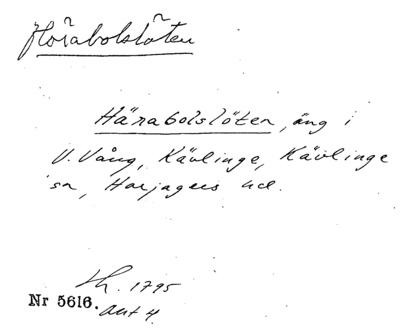 Hörabolslöten
Härabolslöten, äng i
V. Vång, Kävlinge, Kävlinge
sn, Harjagers hd.
Lh. 1795
Nr 5616. akt 4